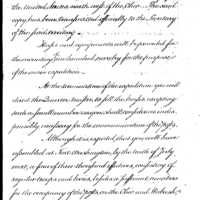 the United States north west of the Ohio. The said
copy has been transmitted officially to the Secretary
of the said territory.
Maps and equipments will be provided for
the mounting one hundred cavalry for the purposes
of the main expedition.
At the termination of the expedition you will
direct the Quarter master, to sell the horses excepting
such a small number as you shall conceive as indis-
pensibly necessary for the communication of the posts.
Although it is expected that you will have
assembled at Fort Washington, by the tenth of July
next, a force of three thousand effectives, consisting of
regular troops and levies, besides a sufficient number
for the occupancy of the posts, on the Ohio and Wabash